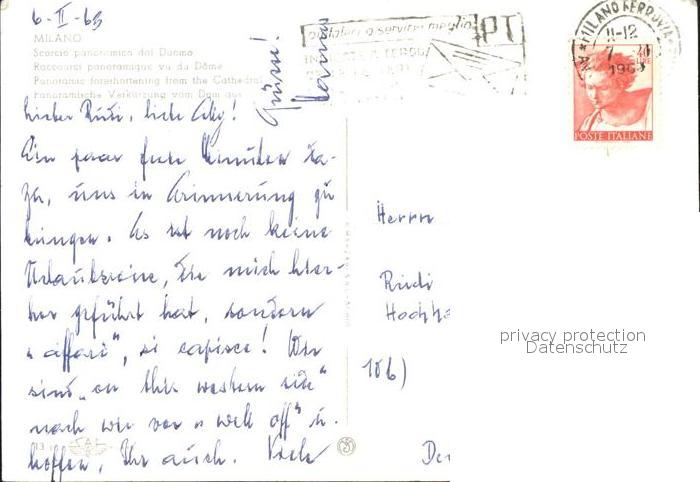 6-II-63
MILANO
Scorcio panoramico dal Duomo
Raccourci panoramique vu du Dôme
Panoramic foreshortening from the Cathedral
Panoramische Verkürzung vom Dom aus
Lieber Rudi, liebe
Ein paar freie Minuten da-
zu, uns in Erinnerung zu
bringen. Es ist noch keine
Urlaubsreise, die mich hier-
her geführt hat, sondern
"affari", si capisce! Wir
sind "on this western side"
nach wie vor "well off" u.
hoffen, Ihr auch. Viele
Grüsse!
MILANO FERROVIA
11-12
7
1963
PT
POSTE ITALIANE
Herrn
Rudi
106)
privacy protection
Datenschutz